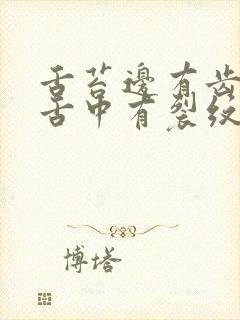 舌苔邊有齿
舌中有裂纹
博塔